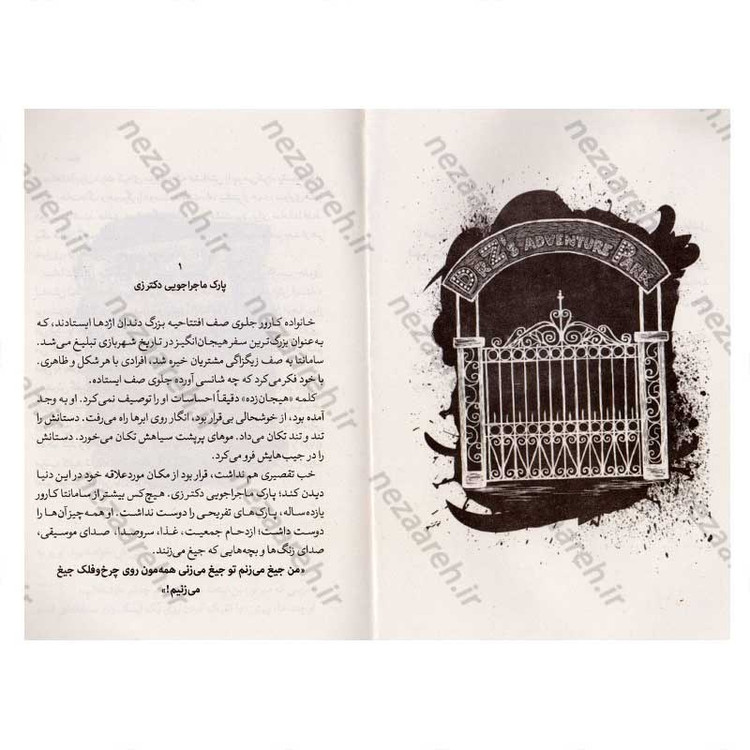 DR Z'S ADVENTURE PARK
۱
پارک ماجراجویی دکتر زی
خانواده کارور جلوی صف افتتاحیه بزرگ دندان اژدها ایستادند، که
به عنوان بزرگ‌ترین سفر هیجان‌انگیز در تاریخ شهربازی تبلیغ می‌شد.
سامانتا به صف زیگزاگی مشتریان خیره شد، افرادی با هر شکل و ظاهری.
با خود فکر می‌کرد که چه شانسی آورده جلوی صف ایستاده.
کلمه «هیجان‌زده» دقیقاً احساسات او را توصیف نمی‌کرد. او به وجد
آمده بود، از خوشحالی بی‌قرار بود، انگار روی ابرها راه می‌رفت. دستانش را
تند و تند تکان می‌داد. موهای پرپشت سیاهش تکان می‌خورد. دستانش
را در جیب‌هایش فرو می‌کرد.
خب تقصیری هم نداشت، قرار بود از مکان مورد علاقه خود در این دنیا
دیدن کند؛ پارک ماجراجویی دکتر زی. هیچ‌کس بیشتر از سامانتا کارور
یازده‌ساله، پارک‌های تفریحی را دوست نداشت. او همه چیز آن‌ها را
دوست داشت؛ ازدحام جمعیت، غذا، سروصدا، صدای موسیقی،
صدای زنگ‌ها و بچه‌هایی که جیغ می‌زنند.
«من جیغ می‌زنم تو جیغ می‌زنی همه‌مون روی چرخ‌وفلک جیغ
می‌زنیم!»
nezaareh.ir
nezaareh.ir
nezaareh.ir
nezaareh.ir
nezaareh.ir
nezaareh.ir
nezaareh.ir
nezaareh.ir